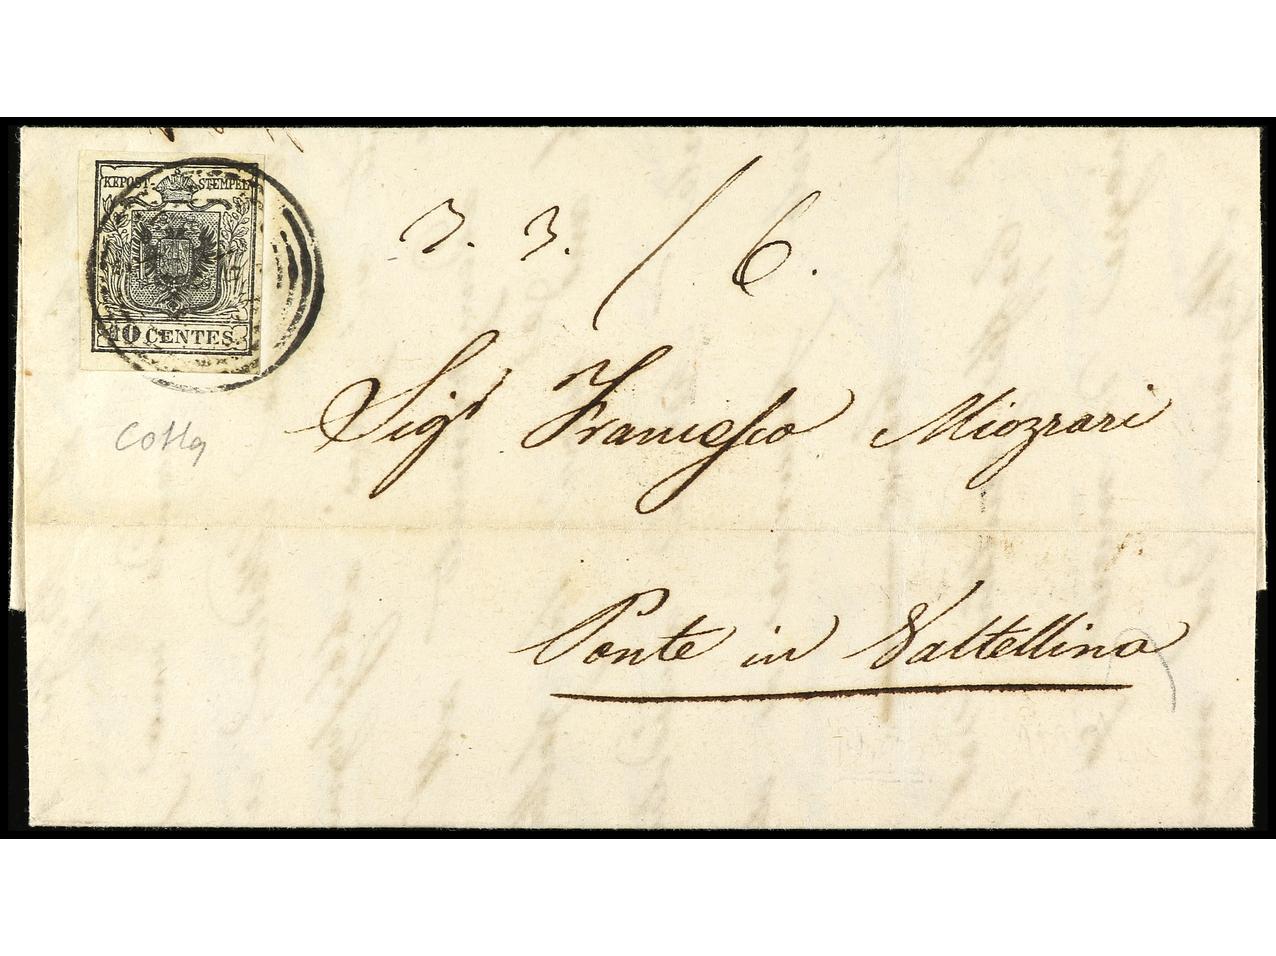 KKPOST-STEMPEL
10 CENTES.
3. 3. / 6.
Sig.r Francesco Miozzari
Ponte in Valtellina